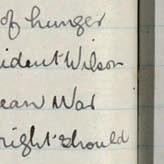 of hunger
sident Wilson
ean War
right should